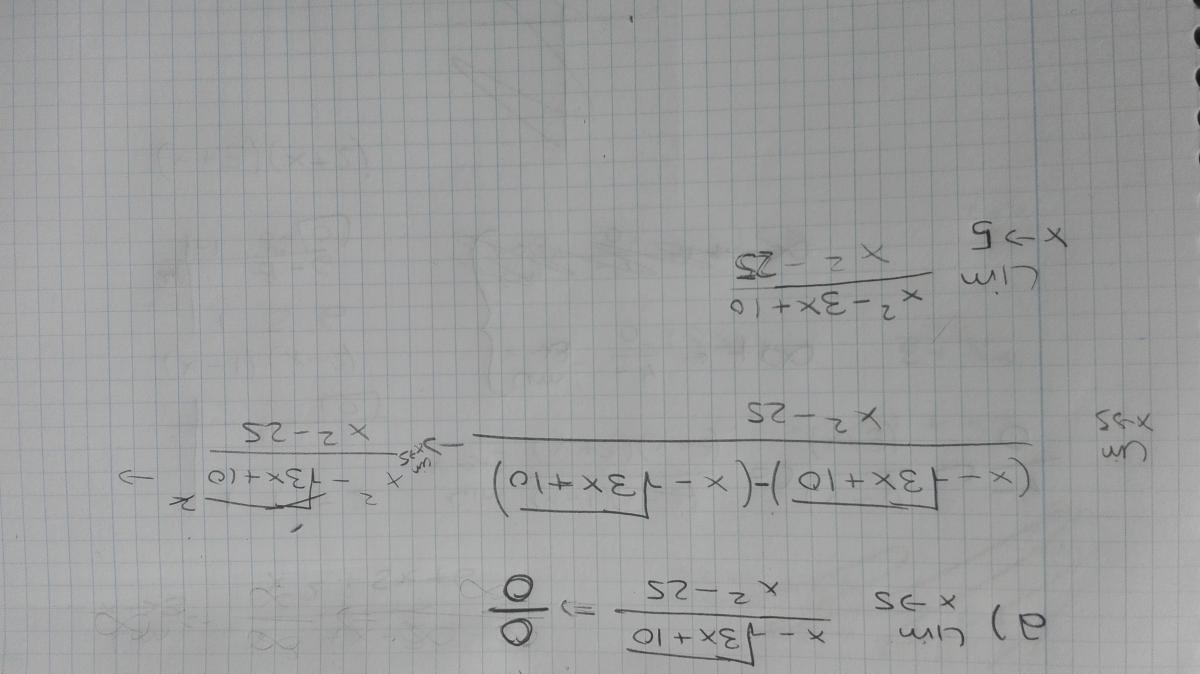 a) lim x→5 (x - √3x+10) / (x² - 25) ⇒ 0/0
lim x→5 ((x - √3x+10)-(x - √3x+10)) / (x² - 25) → lim x→5 (x² - √3x+10²) / (x² - 25) →
lim x→5 (x² - 3x+10) / (x² - 25)